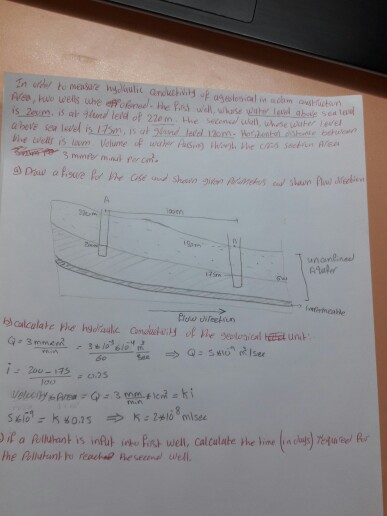 In order to measure hydraulic conductivity of a geological in a dam construction
Area, two wells were offered. the first well, whose water level above sea level
is 200m. is at ground level of 220m. the second well, whose water level
above sea level is 175m, is at ground level 180m. Horizontal distance between
the wells is 100m. Volume of water passing through the cross section Area
3 mm per minut per cm².
a) Draw a figure for the case and shown given parameters and shown flow direction
A
220m
100m
180m
B
unconfined
Aquifer
impermeable
flow direction
b) calculate the hydraulic conductivity of the geological unit:
Q = 3 mm*cm²/min = 3*10⁻³*10⁻⁴/60 m³/sec ⇒ Q = 5*10⁻⁹ m³/sec
i = 200-175/100 = 0.25
Velocity * Area = Q = 3 mm/min * 1cm² = Ki
5*10⁻⁹ = K*0.25 ⇒ K = 2*10⁻⁸ m/sec
) if a Pollutant is input into first well, calculate the time (in days) required for
the Pollutant to reach the second well.